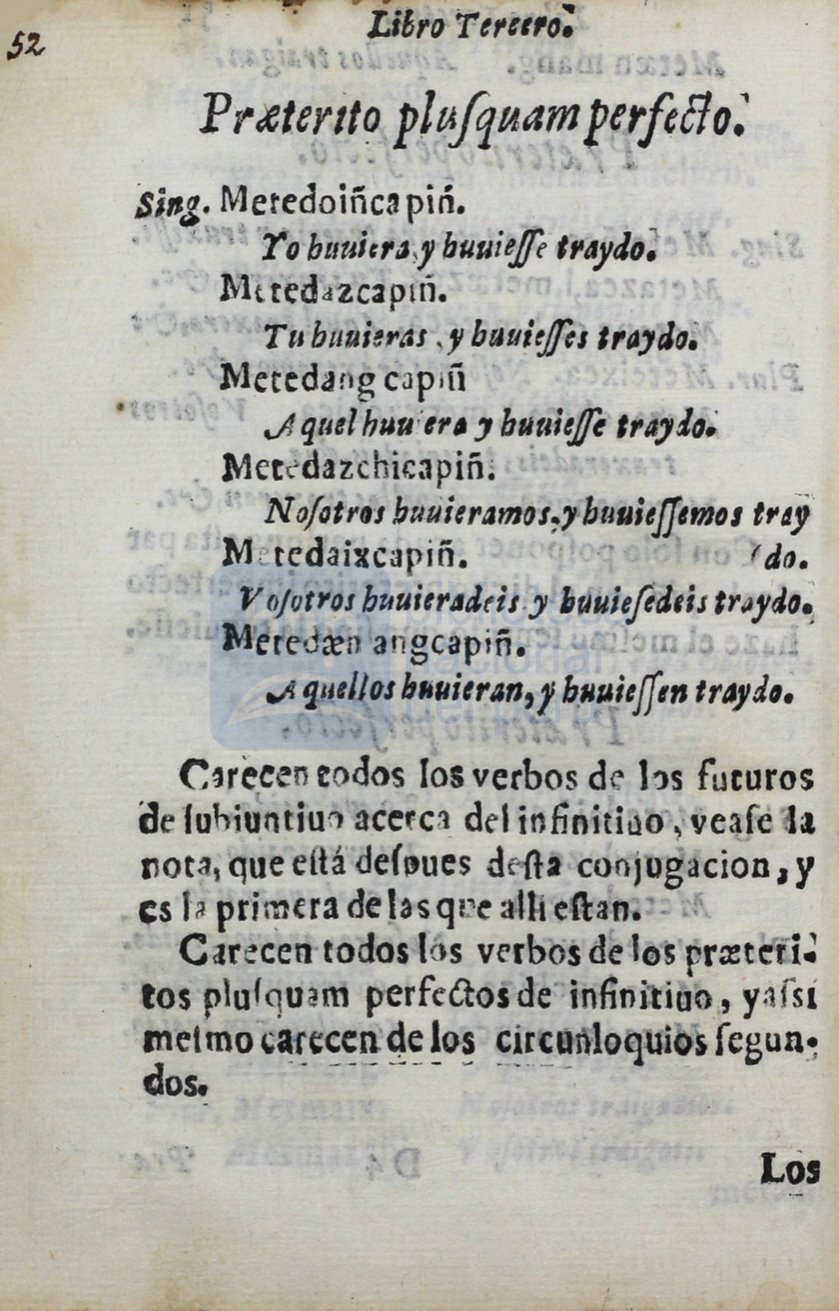 52
Libro Tercero.
Præterito pluſquam perfecto.
Sing. Metedoiñcapiñ.
Yo huuiera, y huuieſſe traydo.
Metedazcapiñ.
Tu huuieras, y huuieſſes traydo.
Metedang capiñ
Aquel huuiera y huuieſſe traydo.
Metedazchicapiñ.
Noſotros huuieramos, y huuieſſemos tray
Metedaixcapiñ. do.
Voſotros huuieradeis y huuieſedeis traydo.
Metedæn angcapiñ.
Aquellos huuieran, y huuieſſen traydo.
Carecen todos los verbos de los futuros
de ſubiuntiuo acerca del infinitiuo, veaſe la
nota, que eſtá deſpues deſta conjugacion, y
es la primera de las que alli eſtan.
Carecen todos los verbos de los præteri-
tos pluſquam perfectos de infinitiuo, y aſsi
meſmo carecen de los circunloquios ſegun-
dos.
Los